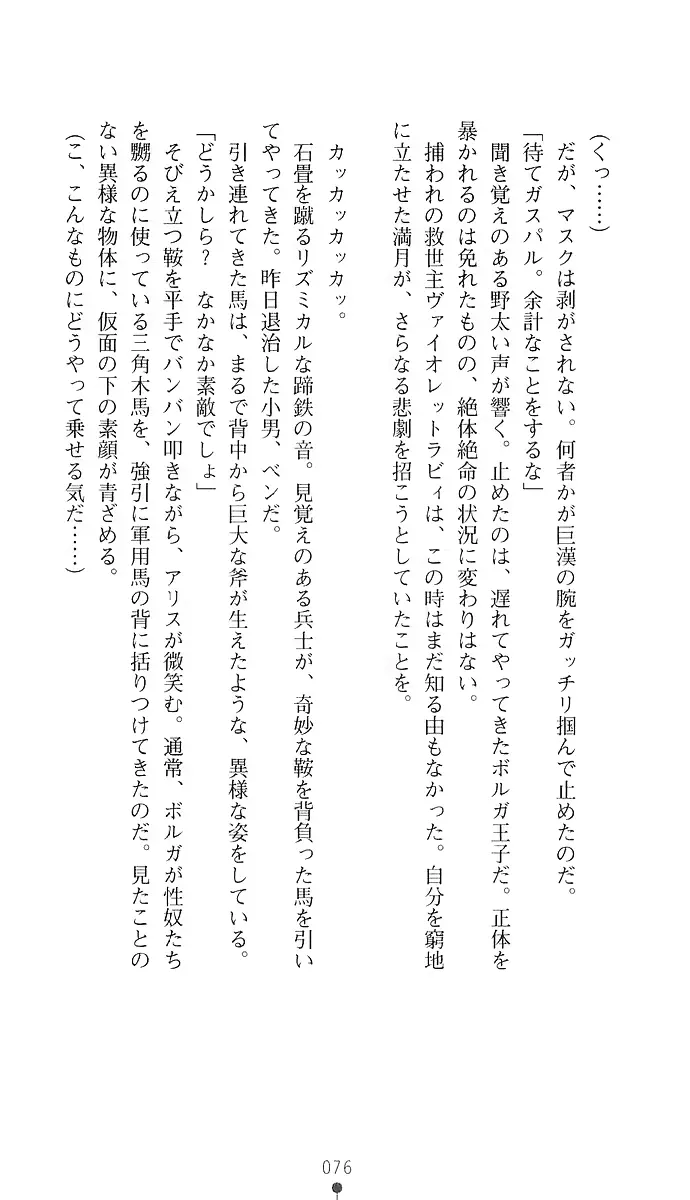 (くっ……)
だが、マスクは剥がされない。何者かが巨漢の腕をガッチリ掴んで止めたのだ。
「待てガスパル。余計なことをするな」
聞き覚えのある野太い声が響く。止めたのは、遅れてやってきたボルガ王子だ。正体を
暴かれるのは免れたものの、絶体絶命の状況に変わりはない。
捕われの救世主ヴァイオレットラビィは、この時はまだ知る由もなかった。自分を窮地
に立たせた満月が、さらなる悲劇を招こうとしていたことを。
カッカッカッカッ。
石畳を蹴るリズミカルな蹄鉄の音。見覚えのある兵士が、奇妙な鞍を背負った馬を引い
てやってきた。昨日退治した小男、ベンだ。
引き連れてきた馬は、まるで背中から巨大な斧が生えたような、異様な姿をしている。
「どうかしら？　なかなか素敵でしょ」
そびえ立つ鞍を平手でバンバン叩きながら、アリスが微笑む。通常、ボルガが性奴たち
を嬲るのに使っている三角木馬を、強引に軍用馬の背に括りつけてきたのだ。見たことの
ない異様な物体に、仮面の下の素顔が青ざめる。
(こ、こんなものにどうやって乗せる気だ……)
076